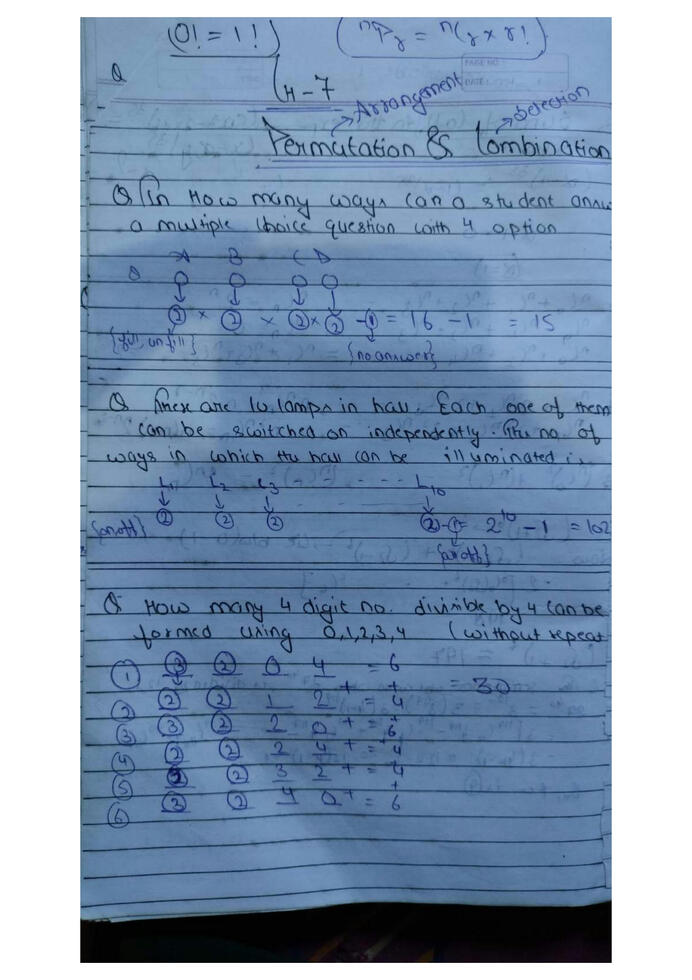 (0! = 1!) (ⁿPᵣ = ⁿ(ᵣ × r!)
Q PAGE NO.
DATE
CH-7
Arrangement Selection
Permutation & Combination
Q In How many ways can a student answ
a multiple choice question with 4 option
A B C D
② × ② × ② × ② - ① = 16 - 1 = 15
{fill, unfill} {no answer}
Q There are 10 lamps in hall. Each one of them
can be switched on independently. The no of
ways in which the hall can be illuminated is
L₁ L₂ L₃ - - - - - - L₁₀
② ② ② ② - ① = 2¹⁰ - 1 = 102
{on off}
Q How many 4 digit no. divisible by 4 can be
formed using 0,1,2,3,4 (without repeat
① ③ ② 0 4 = 6
+ + = 30
② ② ② 1 2 = 4
③ ③ ② 2 0 + = 6
④ ② ② 2 4 + = 4
⑤ ② ② 3 2 + = 4
⑥ ③ ② 4 0 + = 6